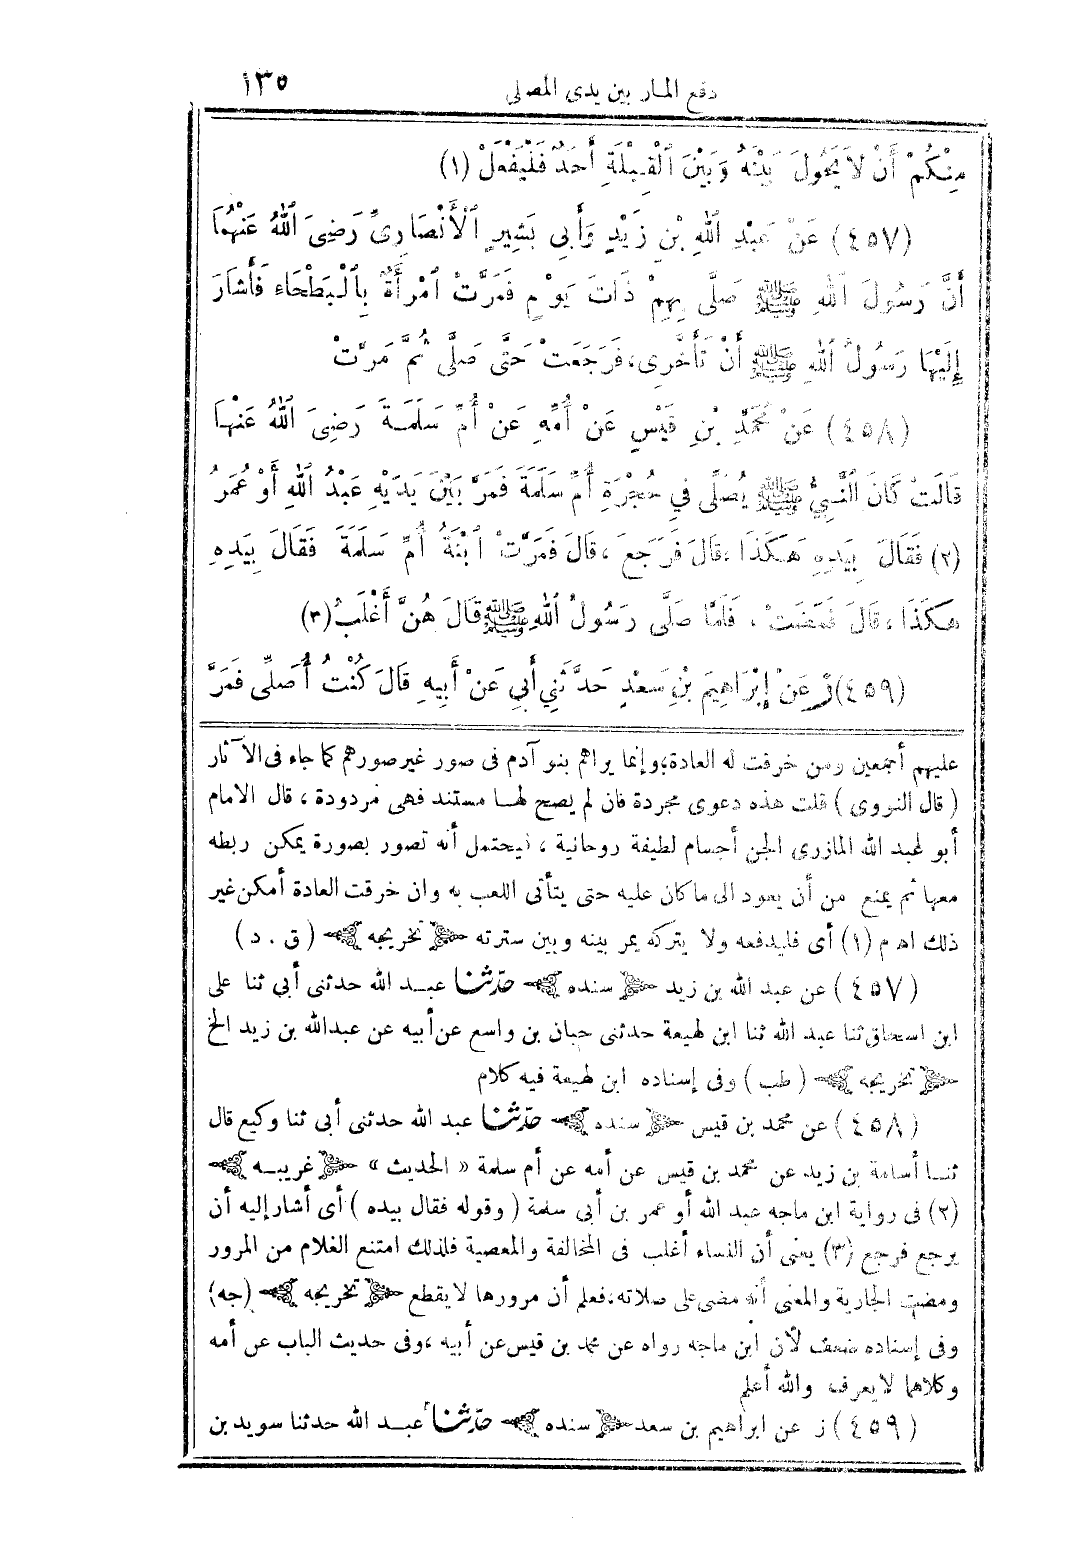 دفع المار بين يدى المصلى ١٣٥
مِنْكُمْ أَنْ لاَ يَحُولَ بَيْنَهُ وَبَيْنَ ٱلْقِبْلَةِ أَحَدٌ فَلْيَفْعَلْ (١)
(٤٥٧) عَنْ عَبْدِ ٱللهِ بْنِ زَيْدٍ وَأَبِي بَشِيرٍ ٱلْأَنْصَارِيِّ رَضِيَ ٱللهُ عَنْهُمَا
أَنَّ رَسُولَ ٱللهِ ﷺ صَلَّى بِهِمْ ذَاتَ يَوْمٍ فَمَرَّتْ ٱمْرَأَةٌ بِٱلْبَطْحَاءِ فَأَشَارَ
إِلَيْهَا رَسُولُ ٱللهِ ﷺ أَنْ تَأَخَّرِى، فَرَجَعَتْ حَتَّى صَلَّى ثُمَّ مَرَّتْ
(٤٥٨) عَنْ مُحَمَّدِ بْنِ قَيْسٍ عَنْ أُمِّهِ عَنْ أُمِّ سَلَمَةَ رَضِيَ ٱللهُ عَنْهَا
قَالَتْ كَانَ ٱلنَّبِيُّ ﷺ يُصَلِّى فِي حُجْرَةِ أُمِّ سَلَمَةَ فَمَرَّ بَيْنَ يَدَيْهِ عَبْدُ ٱللهِ أَوْ عُمَرُ
(٢) فَقَالَ بِيَدِهِ هَكَذَا، قَالَ فَرَجَعَ، قَالَ فَمَرَّتْ ٱبْنَةُ أُمِّ سَلَمَةَ فَقَالَ بِيَدِهِ
هَكَذَا، قَالَ فَمَضَتْ، فَلَمَّا صَلَّى رَسُولُ ٱللهِ ﷺ قَالَ هُنَّ أَغْلَبُ (٣)
(٤٥٩) ز عَنْ إِبْرَاهِيمَ بْنِ سَعْدٍ حَدَّثَنِي أَبِي عَنْ أَبِيهِ قَالَ كُنْتُ أُصَلِّى فَمَرَّ
عليهم أجمعين ومن خرقت له العادة، وإنما يراهم بنو آدم فى صور غير صورهم كما جاء فى الآثار
( قال النووى ) قلت هذه دعوى مجردة فان لم يصح لهـا مستند فهى مردودة ، قال الامام
أبو عبد الله المازرى الجن أجسام لطيفة روحانية ، فيحتمل أنه تصور بصورة يمكن ربطه
معها ثم يمنع من أن يعود الى ما كان عليه حتى يتأتى اللعب به وان خرقت العادة أمكن غير
ذلك اهـ م (١) أى فليدفعه ولا يتركه يمر بينه وبين سترته تخريجه ( ق . د )
(٤٥٧) عن عبد الله بن زيد سنده حدّثنا عبـد الله حدثنى أبى ثنا على
ابن اسحاق ثنا عبد الله ثنا ابن لهيعة حدثنى حبان بن واسع عن أبيه عن عبدالله بن زيد الخ
تخريجه ( طب ) وفى إسناده ابن لهيعة فيه كلام
(٤٥٨) عن محمد بن قيس سنده حدّثنا عبد الله حدثنى أبى ثنا وكيع قال
ثنـا أسامة بن زيد عن محمد بن قيس عن أمه عن أم سلمة « الحديث » غريبـه
(٢) فى رواية ابن ماجه عبد الله أو عمر بن أبى سلمة ( وقوله فقال بيده ) أى أشار إليه أن
يرجع فرجع (٣) يعنى أن النساء أغلب فى المخالفة والمعصية فلذلك امتنع الغلام من المرور
ومضت الجارية والمعنى أنه مضى على صلاته، فعلم أن مرورها لا يقطع تخريجه (جه)
وفى إسناده ضعف لأن ابن ماجه رواه عن محمد بن قيس عن أبيه ، وفى حديث الباب عن أمه
وكلاهما لا يعرف والله أعلم
(٤٥٩) ز عن ابراهيم بن سعد سنده حدّثنا عبـد الله حدثنا سويد بن